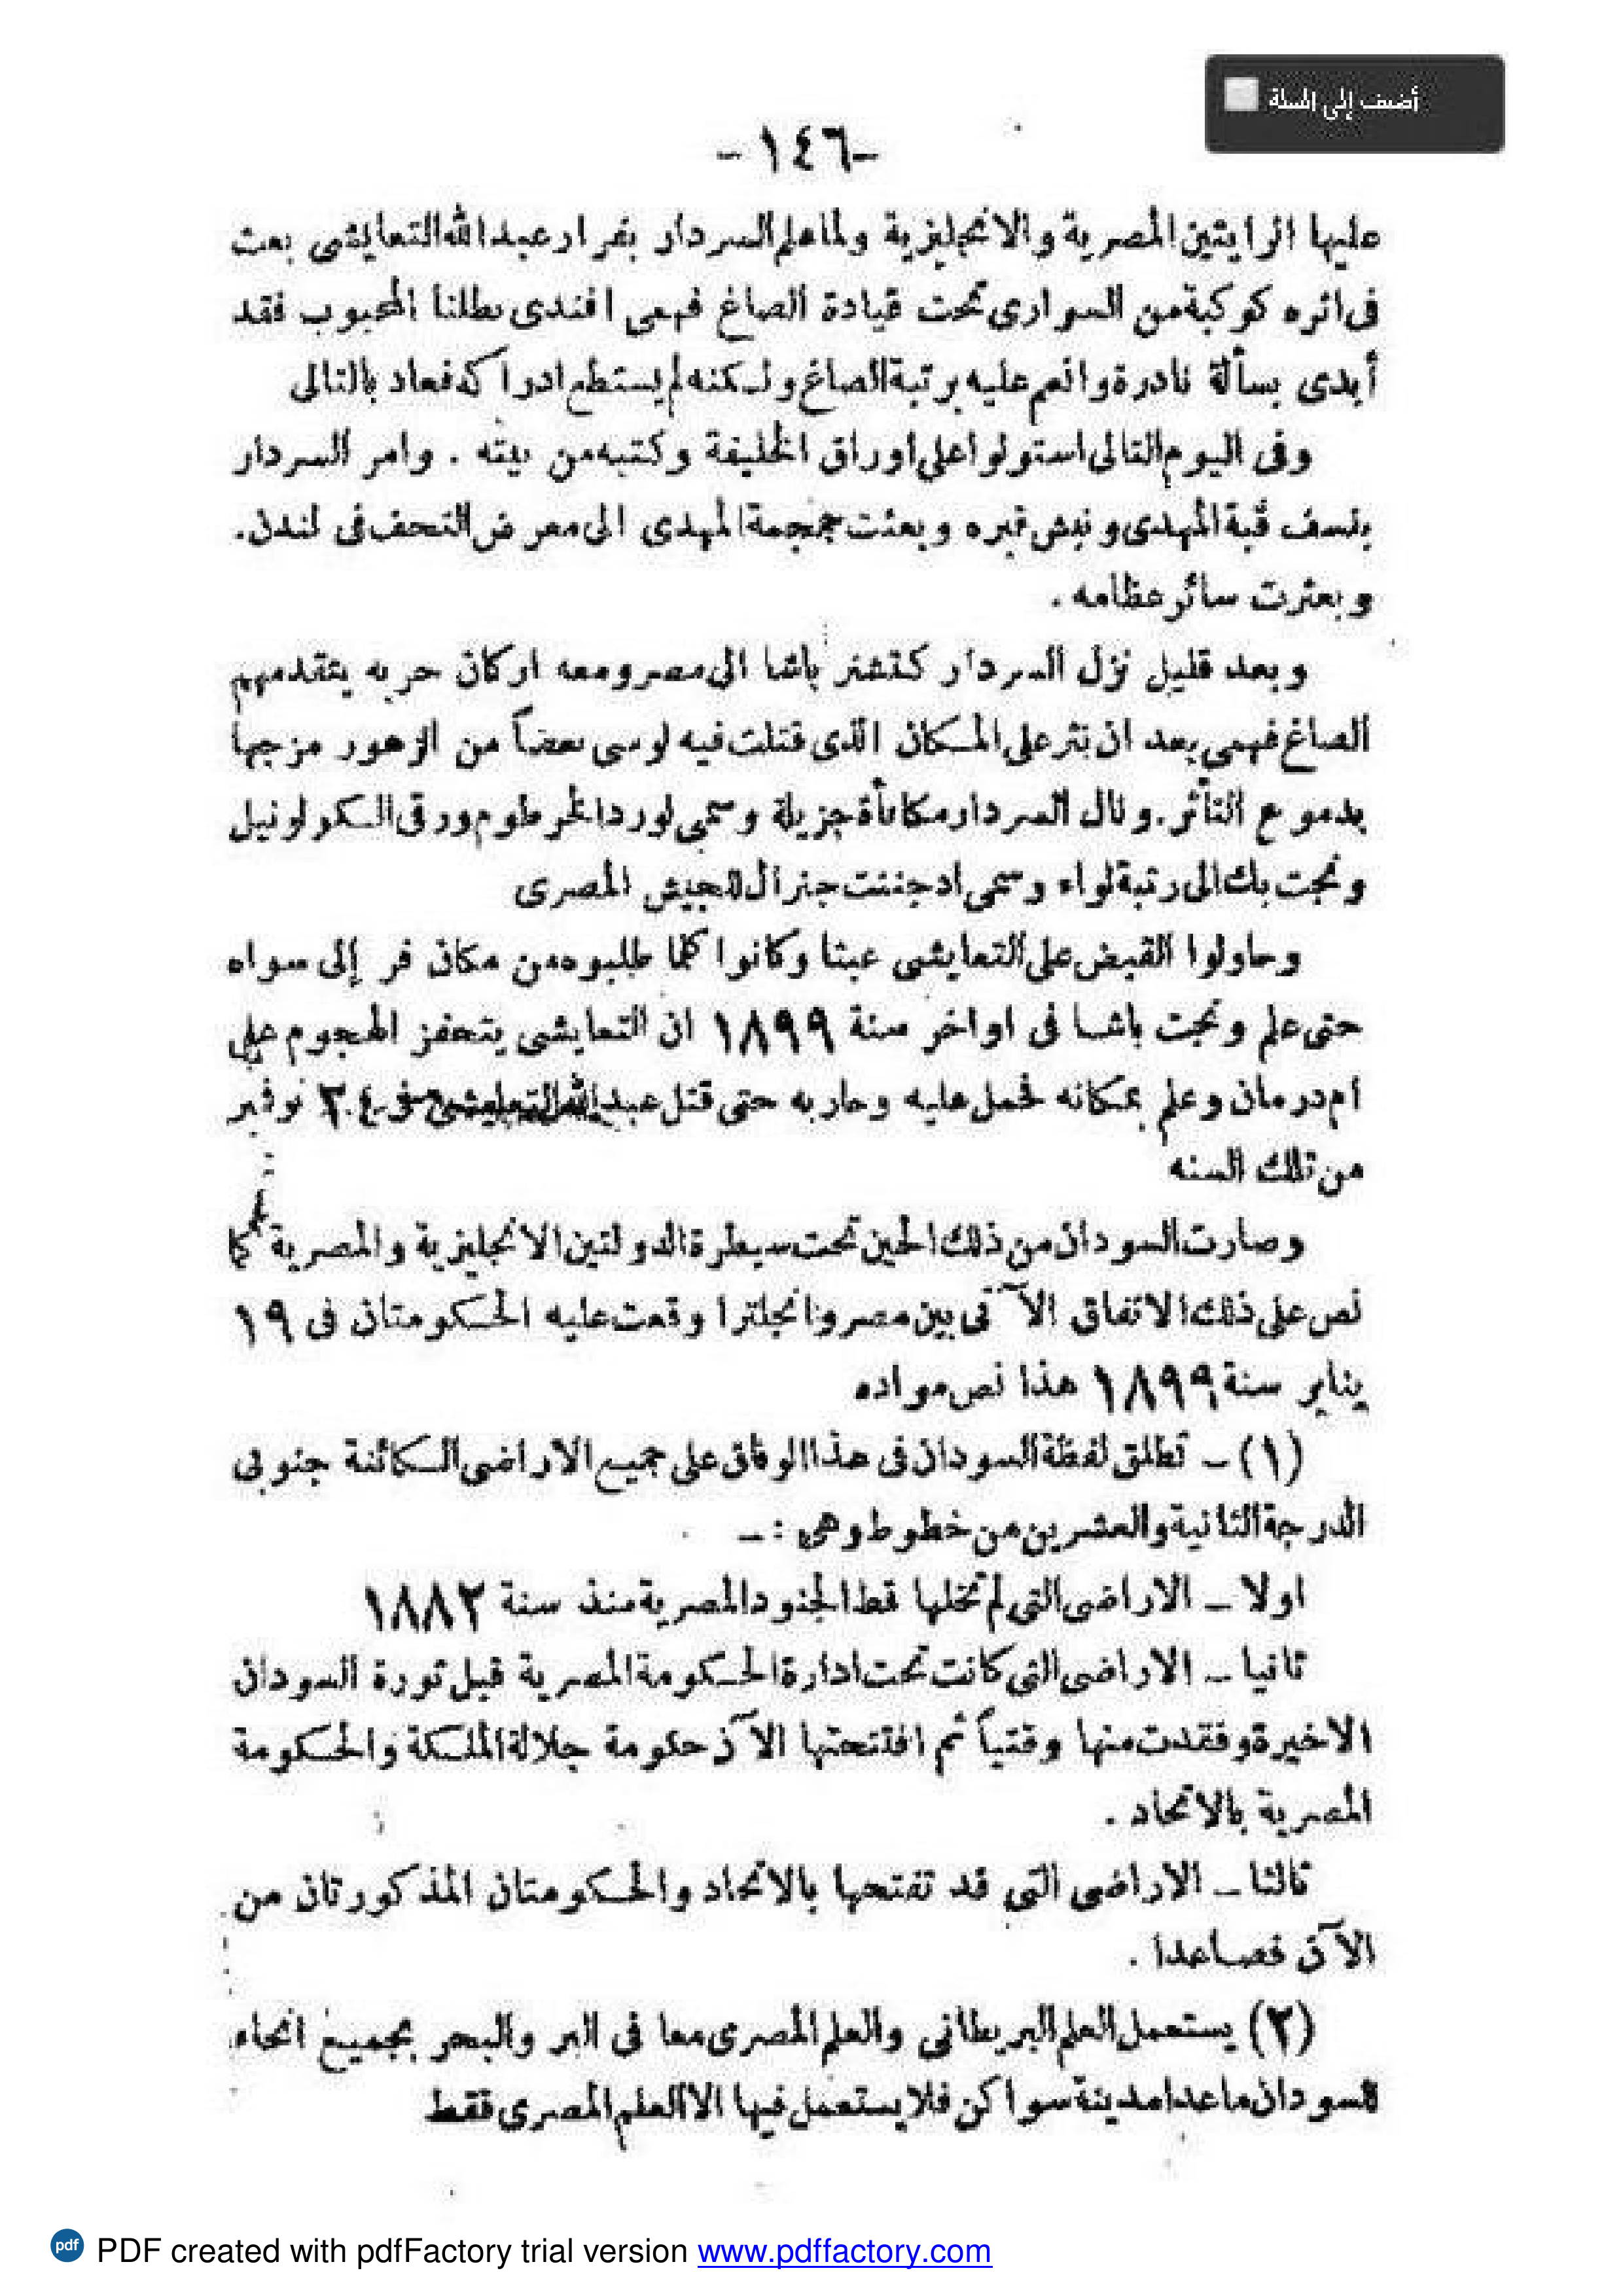 أضف إلى السلة
-١٤٦ -
عليها الرايتين المصرية والانجليزية ولما علم السردار بفرار عبد الله التعايشى بعث
فى اثره كوكبة من السوارى تحت قيادة الصاغ فهمى افندى بطلنا المحبوب فقد
أبدى بسألة نادرة وانعم عليه برتبة الصاغ ولكنه لم يستطع ادراكه فعاد بالتالى
وفى اليوم التالى استولوا على اوراق الخليفة وكتبه من بيته . وامر السردار
بنسف قبة المهدى ونبش قبره وبعثت جمجمة المهدى الى معرض التحف فى لندن.
وبعثرت سائر عظامه .
وبعد قليل نزل السردار كتشنر باشا الى مصر ومعه اركان حربه يتقدمهم
الصاغ فهمى بعد ان نثر على المكان الذى قتلت فيه لوسى بعضاً من الزهور مزجها
بدموع التأثر. ونال السردار مكافأة جزيلة وسمى لورد الخرطوم ورقى الكولونيل
ونجت بك الى رتبة لواء وسمى ادجننت جنرال للجيش المصرى
وحاولوا القبض على التعايشى عبثا وكانوا كلما طلبوه من مكان فر إلى سواه
حتى علم ونجت باشا فى اواخر سنة ١٨٩٩ ان التعايشى يتحفز الهجوم على
ام درمان وعلم بمكانه فحمل عليه وحاربه حتى قتل عبد الله التعايشى فى ٢٤ نوفمبر
من تلك السنه
وصارت السودان من ذلك الحين تحت سيطرة الدولتين الانجليزية والمصرية كما
نص على ذلك الاتفاق الآتى بين مصر وانجلترا وقعت عليه الحكومتان فى ١٩
يناير سنة ١٨٩٩ هذا نص مواده
(١) – تطلق لفظة السودان فى هذا الوفاق على جميع الاراضى الكائنة جنوبى
الدرجة الثانية والعشرين من خطوط وهى : –
اولا – الاراضى التى لم تخلها قط الجنود المصرية منذ سنة ١٨٨٢
ثانيا – الاراضى التى كانت تحت ادارة الحكومة المصرية قبل ثورة السودان
الاخيرة وفقدت منها وقتياً ثم افتتحتها الآن حكومة جلالة الملكة والحكومة
المصرية بالاتحاد .
ثالثا – الاراضى التى قد تفتحها بالاتحاد والحكومتان المذكورتان من
الآن فصاعدا .
(٢) يستعمل العلم البريطانى والعلم المصرى معا فى البر والبحر بجميع انحاء
السودان ماعدا مدينة سواكن فلا يستعمل فيها الا العلم المصرى فقط
pdf PDF created with pdfFactory trial version www.pdffactory.com